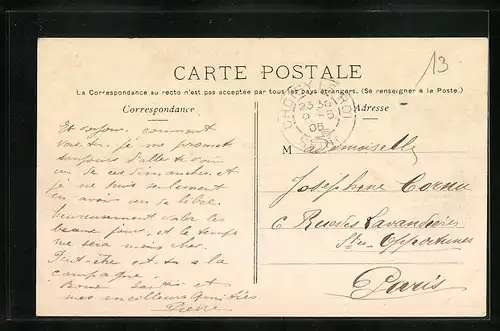 13
CARTE POSTALE
La Correspondance au recto n'est pas acceptée par tous les pays étrangers. (Se renseigner à la Poste.)
Correspondance
Adresse
CHOISY LE ROI
23 30
9 -5
05
SEINE
Et comment
vas-tu. je me promet
toujours d'aller te voir
un de ces dimanches et
je ne puis seulement
en avoir un de libre.
heureusement voler les
beaux jours, et le temps
me sera moins cher.
Peut-être es-tu à la
campagne.
Bonne santé et
mes meilleures amitiés
Pierre
Mademoiselle
Josephine Cornu
6 Rue des Lavandières
Stes Opportunes
Paris